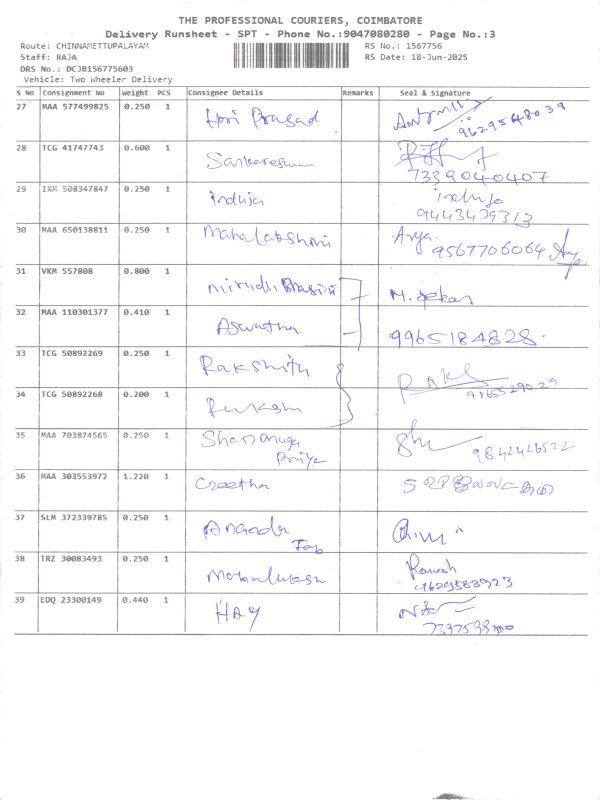 THE PROFESSIONAL COURIERS, COIMBATORE
Delivery Runsheet - SPT - Phone No.:9047080280 - Page No.:3
Route: CHINNAMETTUPALAYAM RS No.: 1567756
Staff: RAJA RS Date: 18-Jun-2025
DRS No.: DCJB156775603
Vehicle: Two Wheeler Delivery
S No Consignment No Weight PCS Consignee Details Remarks Seal & Signature
27 MAA 577499825 0.250 1 Hari Prasad
9629548039
28 TCG 41747743 0.600 1 Sankareswari
7339040407
29 IXM 508347847 0.250 1 induja induja
9443429313
30 MAA 650138811 0.250 1 Mahalakshmi Arya
9567706064
31 VKM 557808 0.800 1
32 MAA 110301377 0.410 1 Aswatha 9965184828
33 TCG 50892269 0.250 1 Rakshitu
34 TCG 50892268 0.200 1
35 MAA 703874565 0.250 1 Shanmuga
Priya 9842426522
36 MAA 303553972 1.220 1 Geetha
37 SLM 372339785 0.250 1
38 TRZ 30083493 0.250 1 Ramesh
9629583923
39 EDQ 23300149 0.440 1